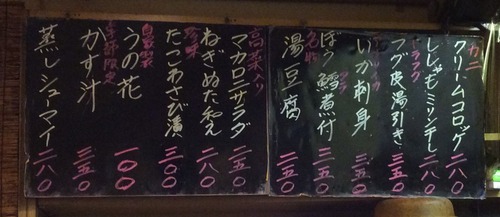 カニ クリームコロッケ 二八〇
ししゃもミリン干し 二八〇
フグ皮湯引き 三五〇
いか刺身 三五〇
名物 ぼう鱈煮付 二五〇
湯豆腐 二五〇
高菜入り マカロニサラダ 二五〇
ねぎぬた和え 二八〇
珍味 たこわさび漬 三〇〇
自家製 うの花 一〇〇
季節限定 かす汁 三五〇
蒸しシューマイ 二八〇